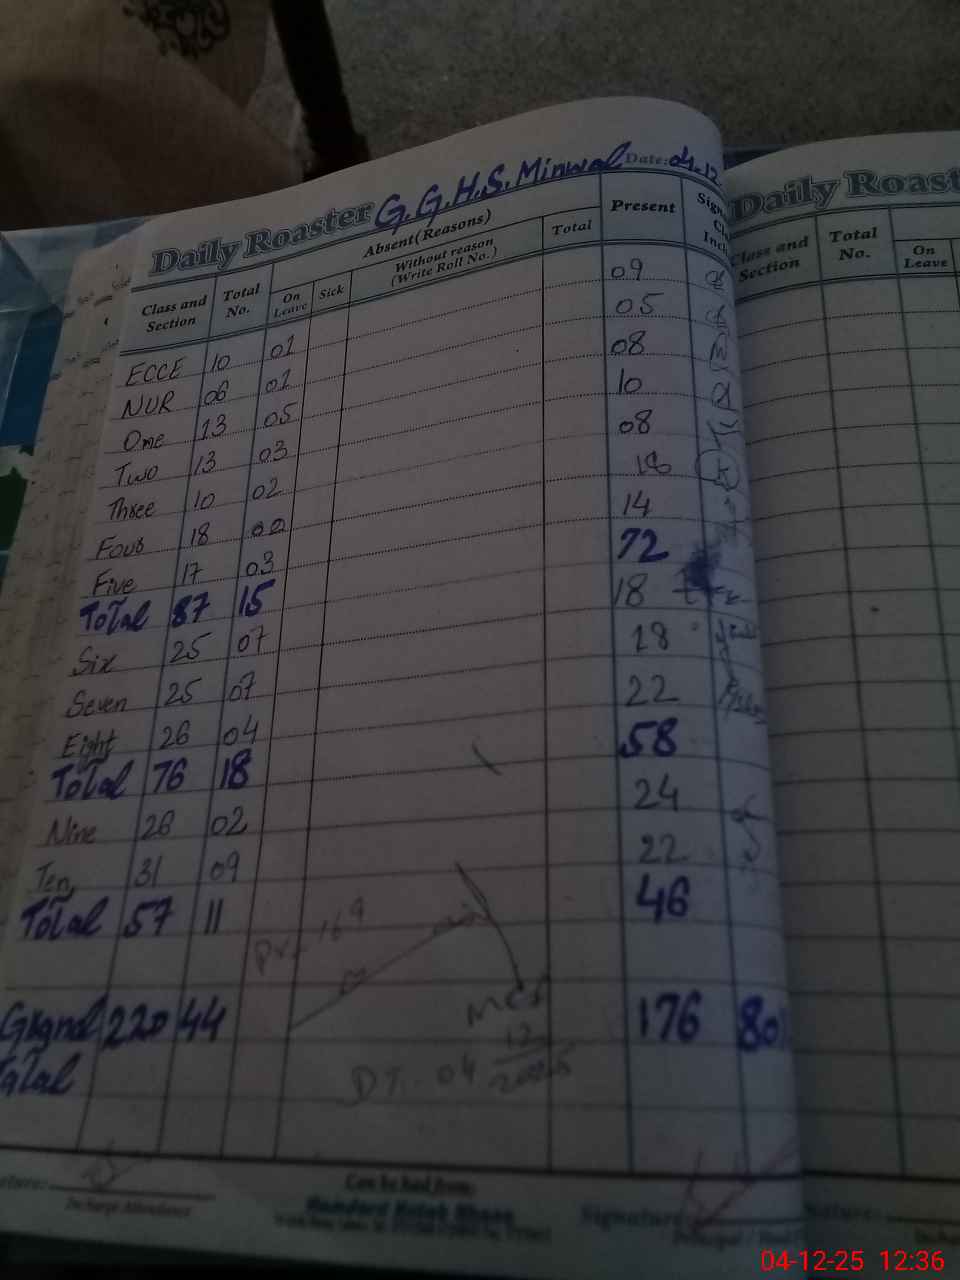 Daily Roaster G.G.H.S. Minwal Date: 04.12.
Class and Section Total No. Absent (Reasons) Present
On Leave Sick Without reason (Write Roll No.) Total
ECCE 10 01 09
NUR 06 01 05
One 13 05 08
Two 13 03 10
Three 10 02 08
Four 18 00 18
Five 17 03 14
Total 87 15 72
Six 25 07 18
Seven 25 07 18
Eight 26 04 22
Total 76 18 58
Nine 26 02 24
Ten 31 09 22
Total 57 11 46
169
Grand 220 44 176 80
Total
DT. 04 12 2025
Incharge Attendance
Can be had from:
Signature
Daily Roast
Class and Section Total No. On Leave
04-12-25 12:36